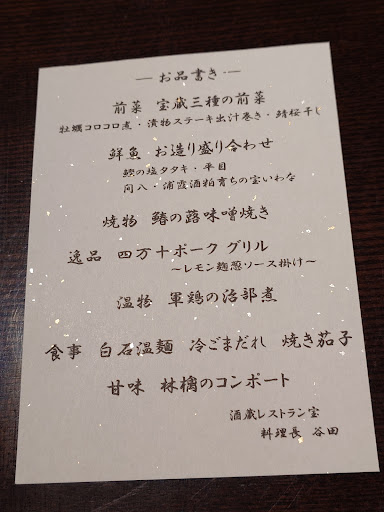 ― お品書き ―
前菜 宝蔵三種の前菜
牡蠣コロコロ煮・漬物ステーキ出汁巻き・鯖桜干し
鮮魚 お造り盛り合わせ
鰹の塩タタキ・平目
間八・浦霞酒粕育ちの宝いわな
焼物 鰆の蕗味噌焼き
逸品 四万十ポーク グリル
～レモン麹葱ソース掛け～
温物 軍鶏の治部煮
食事 白石温麺 冷ごまだれ 焼き茄子
甘味 林檎のコンポート
酒蔵レストラン宝
料理長 谷田